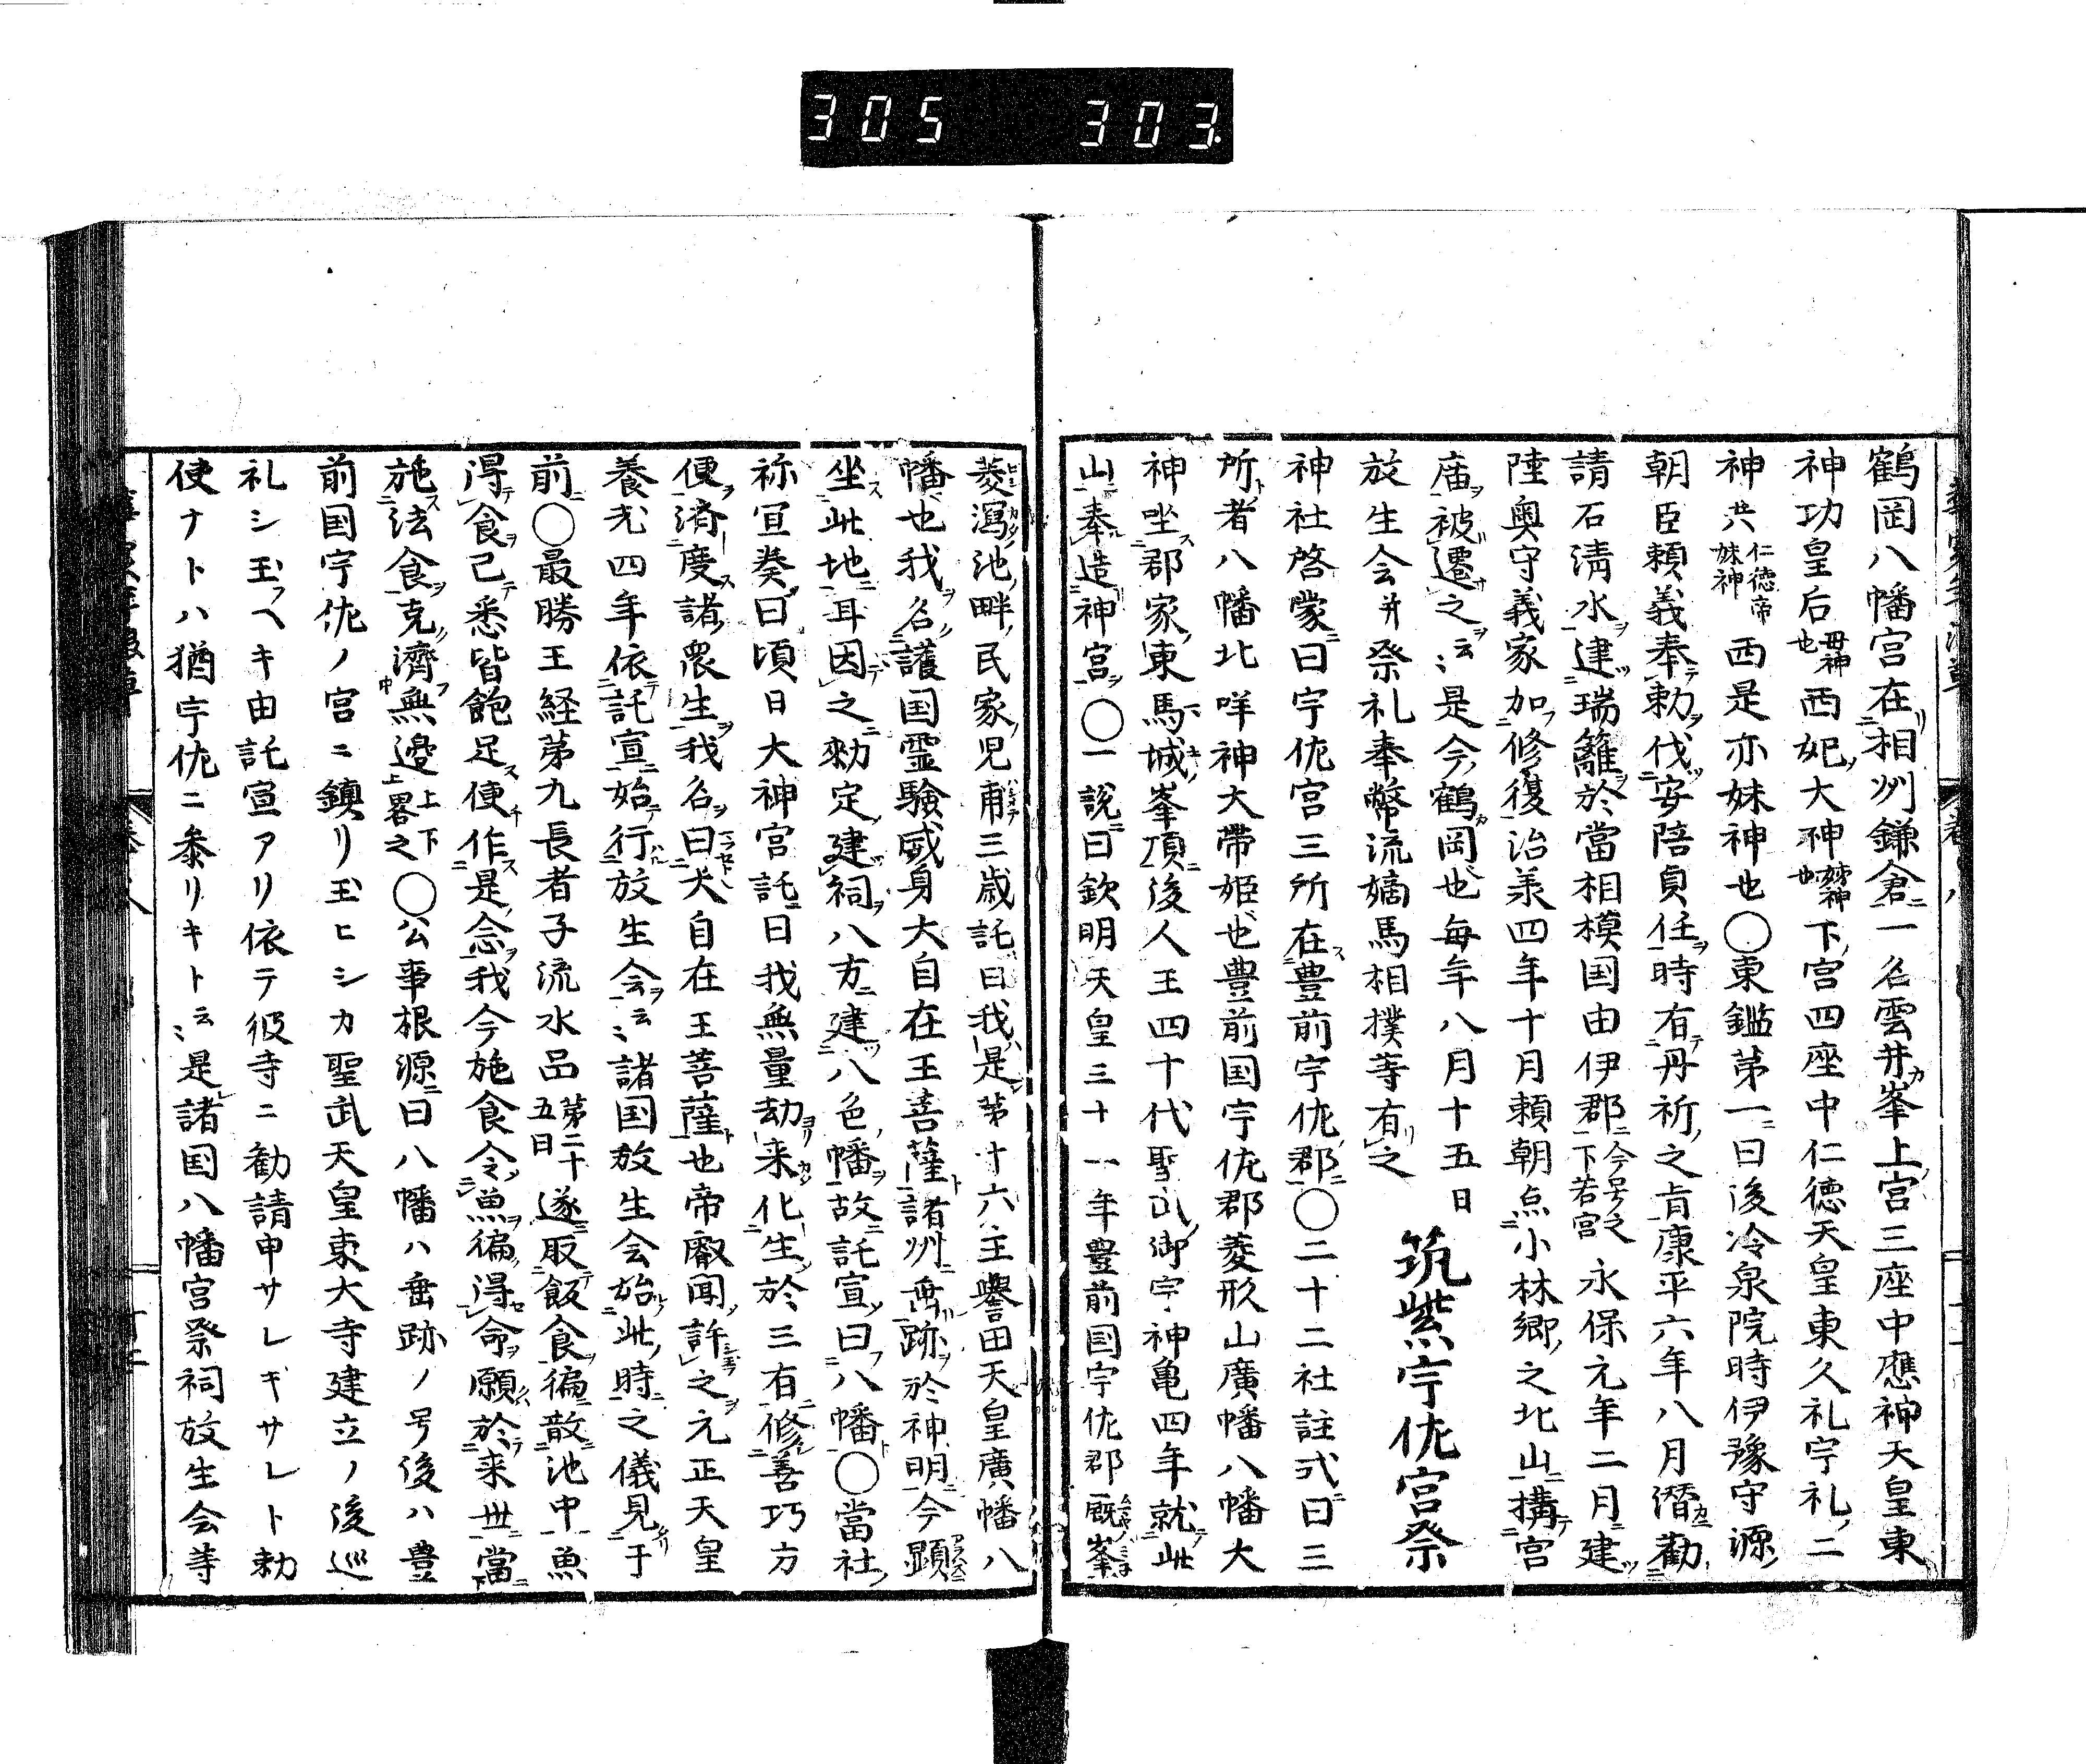 305 303
鶴岡八幡宮在相州鎌倉一名雲井峯上宮三座中應神天皇東
神功皇后母神也西妃大神姉神也下宮四座中仁徳天皇東久礼宇礼二
神共仁徳帝妹神西是亦妹神也〇東鑑第一曰後冷泉院時伊豫守源
朝臣頼義奉勅伐安陪貞任時有丹祈之肯康平六年八月潜勧
請石清水建瑞籬於當相模国由伊郡今号之下若宮永保元年二月建
陸奥守義家加修復治羕四年十月頼朝点小林郷之北山搆宮
庙被遷之云〻是今鶴岡也毎年八月十五日
放生会并祭礼奉幣流鏑馬相撲等有之　筑紫宇佐宮祭
神社啓蒙曰宇佐宮三所在豊前宇佐郡〇二十二社註式曰三
所者八幡北咩神大帯姫也豊前国宇佐郡菱形山廣幡八幡大
神坐郡家東馬城峯頂後人王四十代聖武御宇神亀四年就此
山奉造神宮〇一說曰欽明天皇三十一年豊前国宇佐郡厩峯
菱瀉池畔民家児甫三歳託曰我是第十六主譽田天皇廣幡八
幡也我名護国霊驗威身大自在王菩薩諸州垂跡於神明今顕
坐此地耳因之勅定建祠八方建八色幡故託宣曰八幡〇當社
祢宜奏曰頃日大神宮託曰我無量劫来化生於三有修善巧方
便済度諸衆生我名曰大自在王菩薩也帝叡聞許之元正天皇
養老四年依託宣始行放生会云〻諸国放生会始此時之儀見于
前〇最勝王経第九長者子流水品第二十五曰遂取飯食徧散池中魚
得食已悉皆飽足便作是念我今施食令魚徧得命願於来世當
施法食充濟無邊上下畧之〇公事根源曰八幡ハ垂跡ノ号後ハ豊
前国宇佐ノ宮ニ鎮リ玉ヒシカ聖武天皇東大寺建立ノ後巡
礼シ玉フヘキ由託宣アリ依テ彼寺ニ勧請申サレキサレト勅
使ナトハ猶宇佐ニ参リキト云〻是諸国八幡宮祭祠放生会等